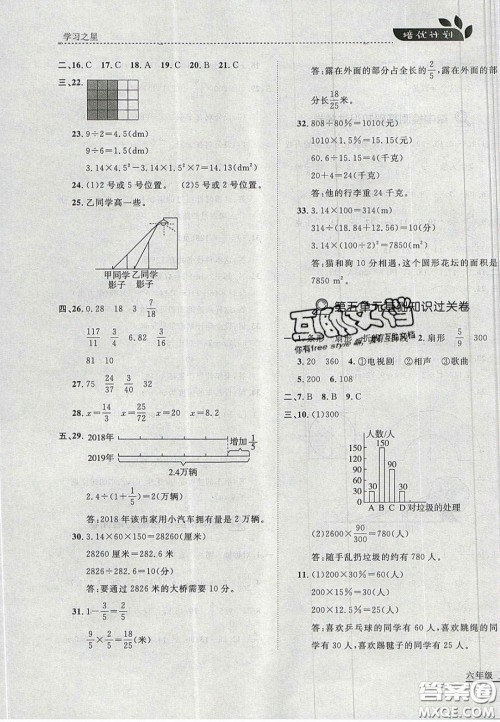 学习之星
培优计划
二、16. C 17. C 18. A 19. C 20. B 21. C
三、22.
23. 9÷2=4.5(dm)
9÷6=1.5(dm)
3.14×4.5²-3.14×1.5²×7=13.14(dm²)
24. (1)2号或5号位置。(2)5号位置。
25. 乙同学高一些。
甲同学 乙同学
影子 影子
四、26. 0.28 18 3 7/18
117/11 31/34 3/2 64/81
0 1/9
27. 24/25 37 3/4 32/40
28. x=14/9 x=20 x=8.2
五、29. 2018年
增加1/5
2019年
2.4万辆
2.4÷(1+1/5)=2(万辆)
答:2018年该市家用小汽车拥有量是2万辆。
30. 3.14×90×100=28260(厘米)
28260厘米=282.6米
2826÷282.6=10(分)
答:要通过2826米的大桥需要10分。
31. 1-3/5=2/5
9/5×2/5=18/25(米)
答:露在外面的部分占全长的2/5,露在外面的部分长18/25米。
32. 808÷80%=1010(元)
1010×1.5%=15.15(元)
60.6÷15.15=4(千克)
20+4=24(千克)
答:他的行李重24千克。
33. 3.14×100=314(米)
314÷(18.84+12.56)=10(分)
3.14×(100÷2)²=7850(m²)
答:猫和狗10分相遇,这个圆形花坛的面积是7850 m²。
第五单元基础知识过关卷
2. 扇形 5/9 300
3. 20 360 4. ①电视剧 ②相声 ③歌曲
5. 200 6. 108
二、7. B 8. B 9. C
三、10. (1)300
人数/人
160
140
120
100
80
60
40
20
0
30 150 90 30
A B C D 对垃圾的处理
(2)2600×90/300=780(人)
答:随手乱扔垃圾的约有780人。
11. (1)200×30%=60(人)
200×5%=10(人)
200×12.5%=25(人)
答:喜欢乒乓球的同学有60人,喜欢跳绳的同学有10人,喜欢踢毽子的同学有25人。
六年级
答案圈
MXQE.COM